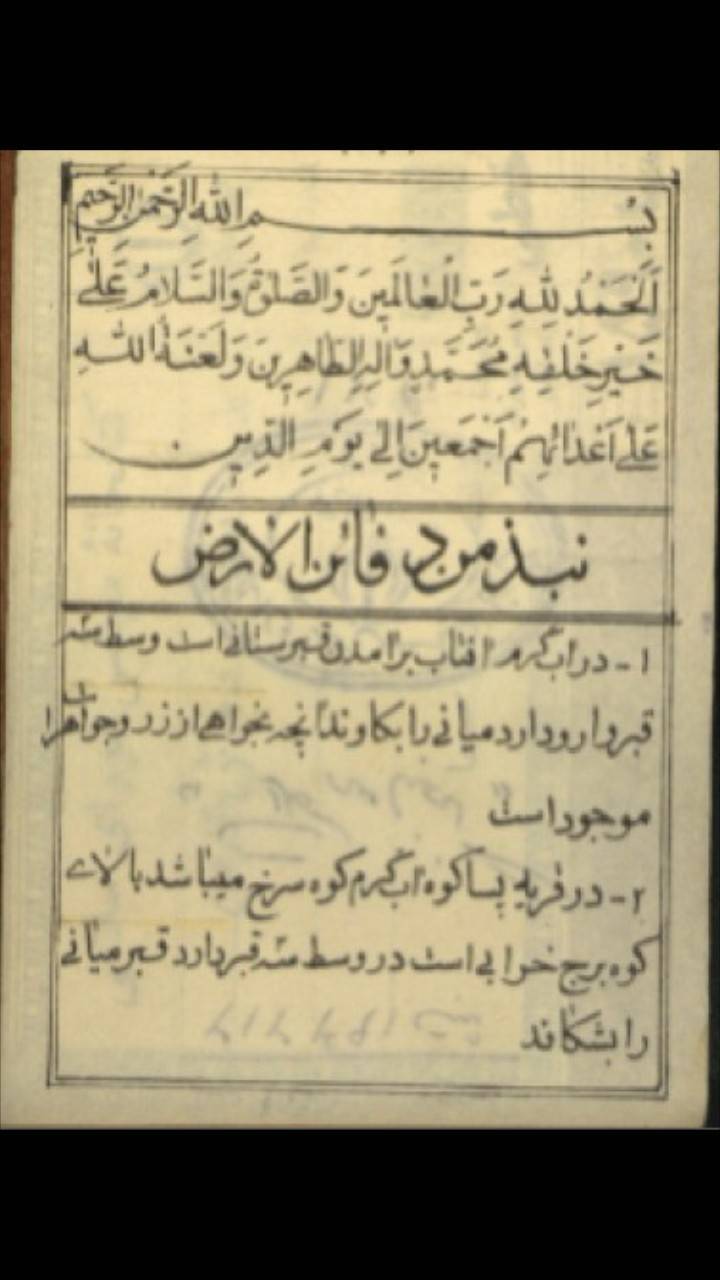 بِسْمِ اللهِ الرَّحْمٰنِ الرَّحيمِ
اَلْحَمْدُ لِلّٰهِ رَبِّ الْعٰالَمينَ وَ الصَّلوٰةُ وَ السَّلامُ عَلىٰ
خَيْرِ خَلْقِهِ مُحَمَّدٍ وَ آلِهِ الطّاهِرينَ وَ لَعْنَةُ اللهِ
عَلىٰ اَعْدائِهِمْ اَجْمَعينَ اِلىٰ يَوْمِ الدّينِ
نبذ من دفائن الارض
۱- در اب گرم افتاب برامدن قبرستانی است وسط سه
قبر وارو دارد میانی را بکاوند انچه بخواهی از زر و جواهرات
موجود است
۲- در قریه پسا کوه اب گرم کوه سرخ میباشد بالای
کوه برج خرابی است در وسط سه قبر دارد قبر میانی
را بشکافند